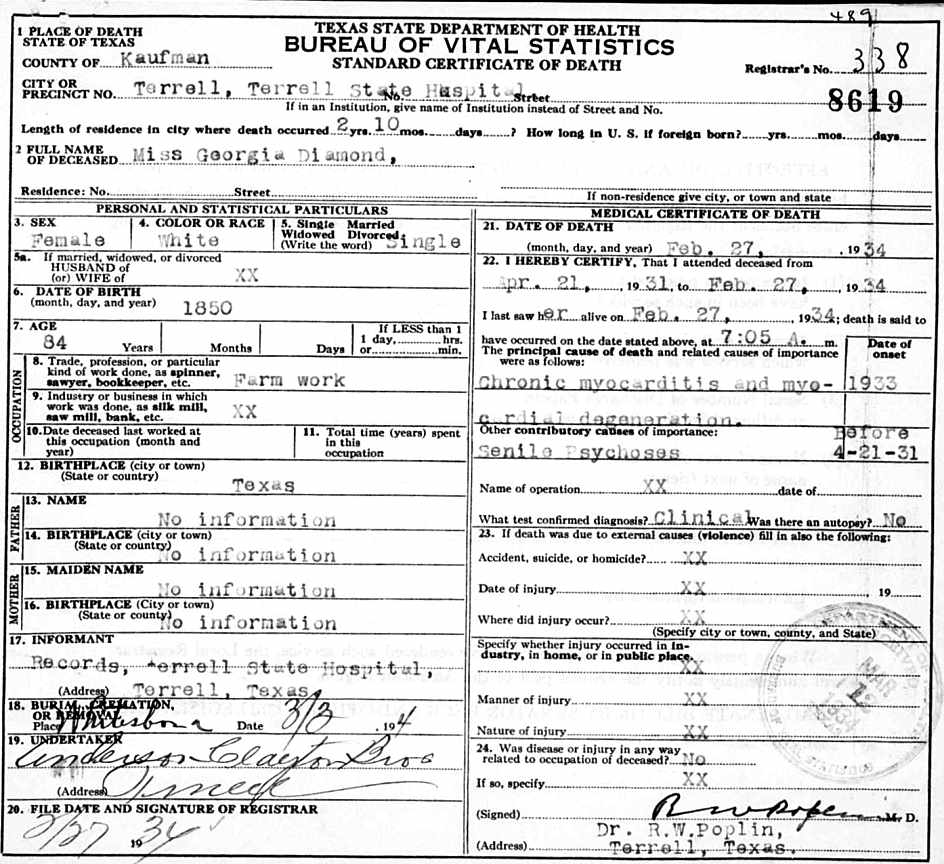 489
TEXAS STATE DEPARTMENT OF HEALTH
BUREAU OF VITAL STATISTICS
STANDARD CERTIFICATE OF DEATH
1 PLACE OF DEATH
STATE OF TEXAS
COUNTY OF Kaufman
Registrar's No. 338
CITY OR
PRECINCT NO. Terrell, Terrell State Hospital No. Street
8619
If in an Institution, give name of Institution instead of Street and No.
Length of residence in city where death occurred 2 yrs. 10 mos. days ? How long in U. S. if foreign born? yrs. mos. days
2 FULL NAME
OF DECEASED Miss Georgia Diamond,
Residence: No. Street
If non-residence give city, or town and state
PERSONAL AND STATISTICAL PARTICULARS
3. SEX
Female
4. COLOR OR RACE
White
5. Single Married
Widowed Divorced
(Write the word) Single
5a. If married, widowed, or divorced
HUSBAND of
(or) WIFE of XX
6. DATE OF BIRTH
(month, day, and year) 1850
7. AGE
84 Years Months Days
If LESS than 1
1 day, hrs.
or min.
OCCUPATION
8. Trade, profession, or particular
kind of work done, as spinner,
sawyer, bookkeeper, etc. Farm work
9. Industry or business in which
work was done, as silk mill,
saw mill, bank, etc. XX
10. Date deceased last worked at
this occupation (month and
year)
11. Total time (years) spent
in this
occupation
12. BIRTHPLACE (city or town)
(State or country) Texas
FATHER
13. NAME
No information
14. BIRTHPLACE (city or town)
(State or country) No information
MOTHER
15. MAIDEN NAME
No information
16. BIRTHPLACE (City or town)
(State or country) No information
17. INFORMANT
Records, Terrell State Hospital,
(Address) Terrell, Texas
18. BURIAL, CREMATION,
OR REMOVAL
Place Date 3/3 , 194
19. UNDERTAKER
Anderson Clayton Bros
(Address) Terrell
20. FILE DATE AND SIGNATURE OF REGISTRAR
3/27 1934
MEDICAL CERTIFICATE OF DEATH
21. DATE OF DEATH
(month, day, and year) Feb. 27, , 1934
22. I HEREBY CERTIFY, That I attended deceased from
Apr. 21, , 1931, to Feb. 27, , 1934
I last saw her alive on Feb. 27, , 1934; death is said to
have occurred on the date stated above, at 7:05 A. m.
The principal cause of death and related causes of importance
were as follows:
Date of
onset
Chronic myocarditis and myo- 1933
cardial degeneration.
Other contributory causes of importance: Before
Senile Psychoses 4-21-31
Name of operation XX date of
What test confirmed diagnosis? Clinical Was there an autopsy? No
23. If death was due to external causes (violence) fill in also the following:
Accident, suicide, or homicide? XX
Date of injury XX , 19
Where did injury occur? XX
(Specify city or town, county, and State)
Specify whether injury occurred in in-
dustry, in home, or in public place.
XX
Manner of injury XX
Nature of injury XX
24. Was disease or injury in any way
related to occupation of deceased? No
If so, specify XX
(Signed) R W Poplin M. D.
Dr. R.W.Poplin,
(Address) Terrell, Texas.